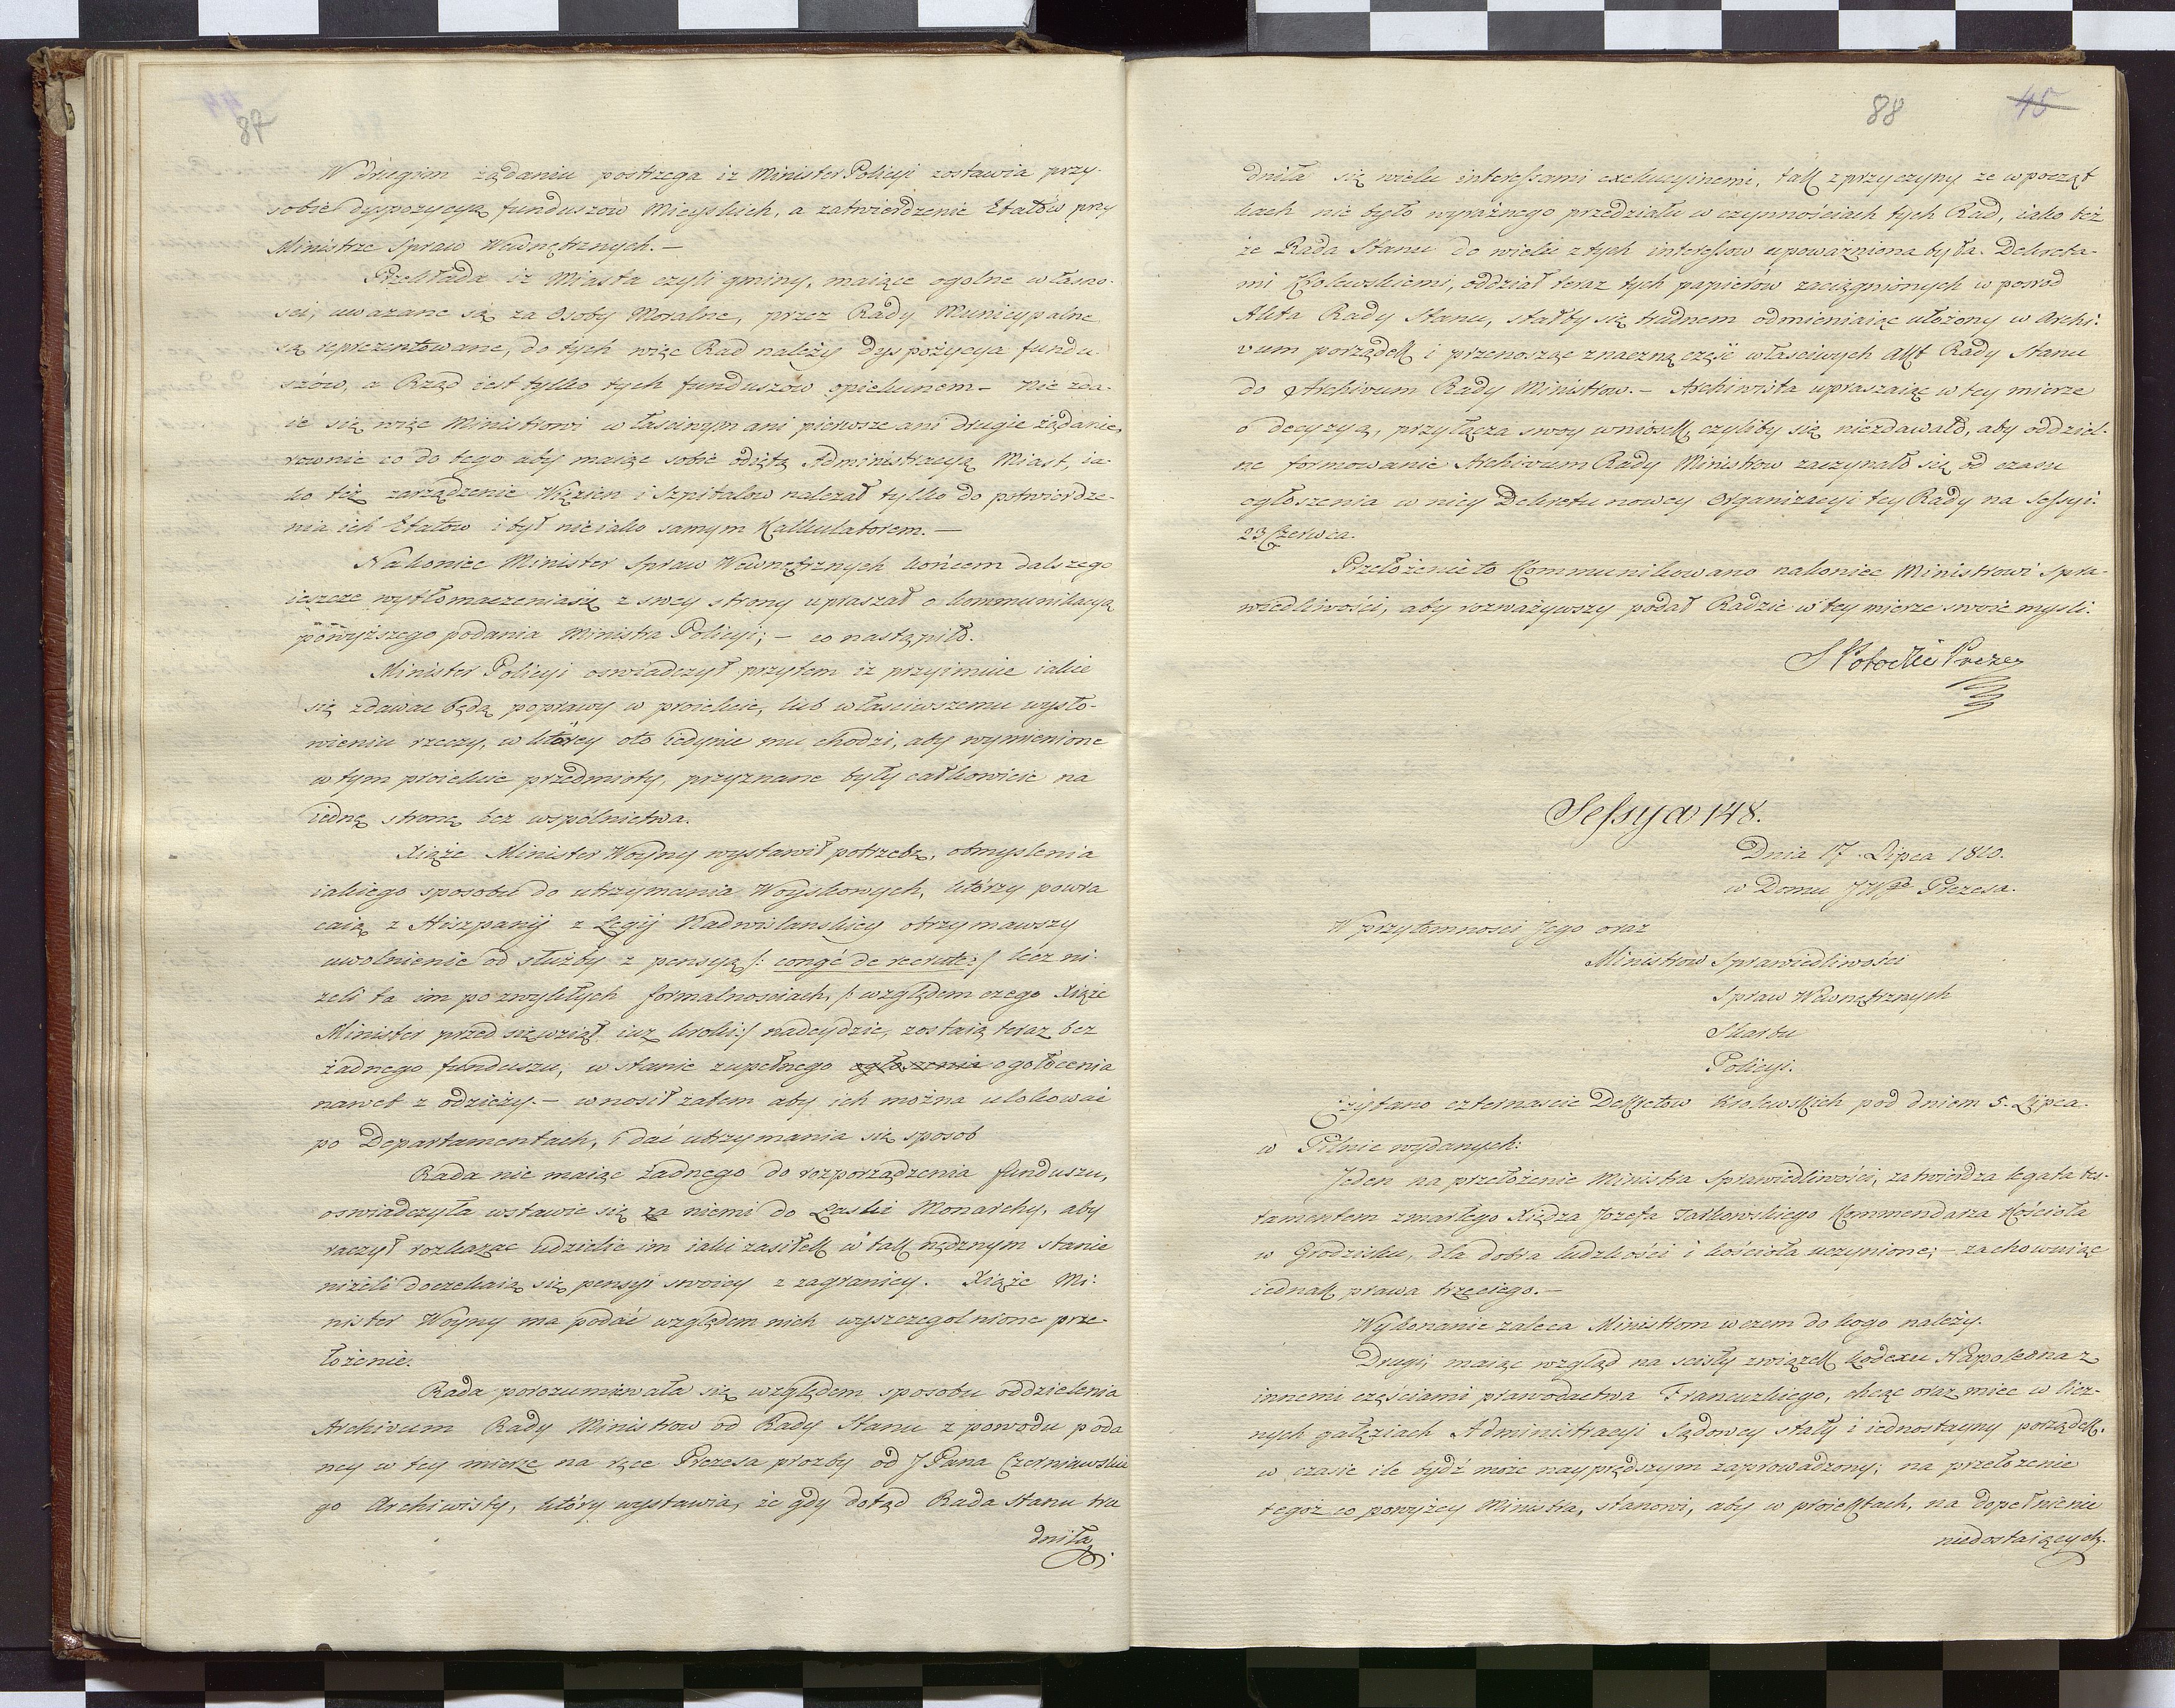 87
W drugim żądaniu postrzega iz Minister Policyi zostawia przy
sobie dyspozycyą funduszow Mieyskich, a zatwierdzenie Etatów przy
Ministrze Spraw Wewnętrznych. —
Przekłada iz Miasta czyli gminy, maiące ogolne własno-
sci, uwazane są za Osoby Moralne, przez Rady Municypalne
są reprezentowane, do tych więc Rad należy dyspozycya fundu-
szów, a Rząd iest tylko tych funduszow opiekunem — Nie zda-
ie się więc Ministrowi włascinym ani pierwsze ani drugie żądanie,
rownie co do tego aby maiąc sobie odiętą Administracyą Miast, ia-
ko też zarządzenie Więzien i Szpitalow nalezał tylko do potwierdze-
nia ich Etatow i był nieiako samym Kalkulatorem. —
Nakoniec Minister Spraw Wewnętrznych końcem dalszego
ieszcze wytłomaczenia się z swey strony upraszał o kommunikacyą
powyższego podania Ministra Policyi; — co nastąpiło.
Minister Policyi oswiadczył przytem iz przyimuie iakie
się zdawac będą poprawy w proiekcie, lub właściwszemu wysło-
wieniu rzeczy, w ktorey oto iedynie mu chodzi, aby wymienione
w tym proiekcie przedmioty, przyznane były całkowicie na
iednę stronę bez wspólnictwa.
Xiąże Minister Woyny wystawił potrzebę, obmyslenia
iakiego sposobu do utrzymania Woyskowych, którzy powra
caią z Hiszpanij z Legij Nadwislanskiey otrzymawszy
uwolnienie od służby z pensyą /: congé de recrute :/ lecz ni-
zeli ta im po zwykłych formalnosciach, /: względem czego Xiąże
Minister przed się wziął iuz kroki :/ nadeydzie, zostaią teraz bez
żadnego funduszu, w stanie zupełnego ogłoszenia ogołocenia
nawet z odzieży. — wnosił zatem aby ich można ulokować
po Departamentach, i dać utrzymania się sposob
Rada nie maiąc żadnego do rozporządzenia funduszu,
oswiadczyła wstawic się za niemi do Łaski Monarchy, aby
raczył rozkazac udzielic im iaki zasiłek w tak nędznym stanie
niżeli doczekaią się pensyi swoiey z zagranicy. Xiąże Mi-
nister Woyny ma podać względem nich wyszczegolnione prze-
łożenie.
Rada porozumiewała się względem sposobu oddzielenia
Archivum Rady Ministrow od Rady Stanu z powodu poda
ney w tey mierze na ręce Prezesa prozby od JPana Czerniawskie
go Archiwisty, który wystawia, że gdy dotąd Rada Stanu tru
dniła
88 45
dniła się wielu interessami exekucyinemi, tak z przyczyny ze w począt
kach nie było wyraźnego przedziału w czynnościach tych Rad, iako też
że Rada Stanu do wielu z tych interessow upoważniona była Dekreta-
mi Krolewskiemi, oddział teraz tych papierów zaciągnionych w posrod
Akta Rady Stanu, stałby się trudnem odmieniaiąc ułożony w Archi-
vum porządek i przenosząc znaczną część właściwych Akt Rady Stanu
do Archivum Rady Ministrow. — Archiwista upraszaiąc w tey mierze
o decyzyą, przyłącza swoy wniosek, czyliby się niezdawało, aby oddziel-
ne formowanie Archivum Rady Ministrow zaczynało się od czasu
ogłoszenia w niey Dekretu nowey Organizacyi tey Rady na Sessyi
23 Czerwca.
Przełożenie to Kommunikowano nakoniec Ministrowi Spra-
wiedliwości, aby rozważywszy podał Radzie w tey mierze swoie mysli.
S Potocki Prezes
Sessya 148.
Dnia 17 Lipca 1810.
w Domu JWgo Prezesa.
W przytomnosci Jego oraz
Ministrow Sprawiedliwości
Spraw Wewnętrznych
Skarbu
Policyi.
Czytano czternascie Dekretow Krolewskich pod dniem 5. Lipca
w Pilnic wydanych:
Jeden na przełożenie Ministra Sprawiedliwości, zatwierdza legata tes-
tamentem zmarłego Xiędza Jozefa Jarkowskiego Kommendarza Kościoła
w Grodzisku, dla dobra ludzkości i kościoła uczynione; — zachowuiąc
iednak prawa trzeciego. —
Wykonanie zaleca Ministrom w czem do kogo należy.
Drugi, maiąc wzgląd na scisły związek Kodexu Napoleona z
innemi częściami prawodactwa Francuzkiego, chcąc oraz miec w licz-
nych gałęziach Administracyi Sądowey stały i iednostayny porządek,
w czasie ile bydź może nayprędszym zaprowadzony; na przełozenie
tegoż co powyżey Ministra, stanowi, aby w proiektach, na dopełnienie
niedostaiących